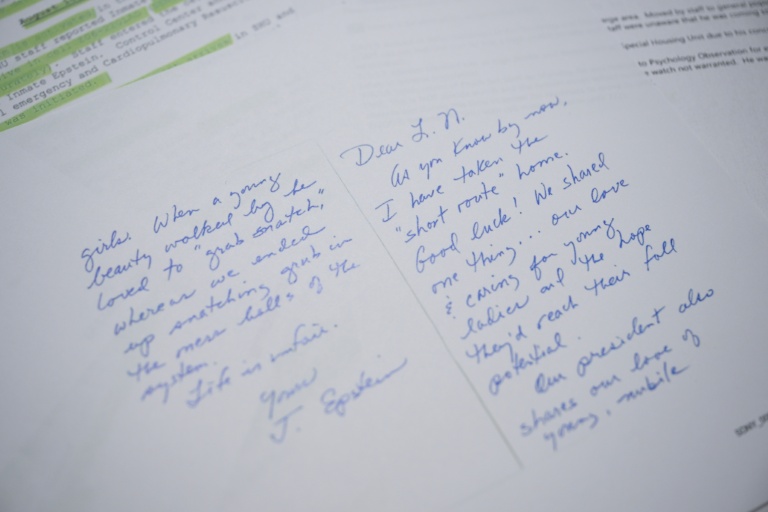 August
staff reported Inmate
Staff entered the
Inmate Epstein. Control Center
emergency and Cardiopulmonary
was initiated. in SHU and
area. Moved by staff to general
were unaware that he was coming
Housing Unit due to his
to Psychology Observation for
watch not warranted. He
Dear L. N.
As you know by now,
I have taken the
"short route" home.
Good luck! We shared
one thing... our love
& caring for young
ladies and the hope
they'd reach their full
potential.
Our president also
shares our love of
young, nubile
girls. When a young
beauty walked by he
loved to "grab snatch,"
whereas we ended
up snatching grub in
the mess halls of the
system.
Life is unfair.
Yours
J. Epstein